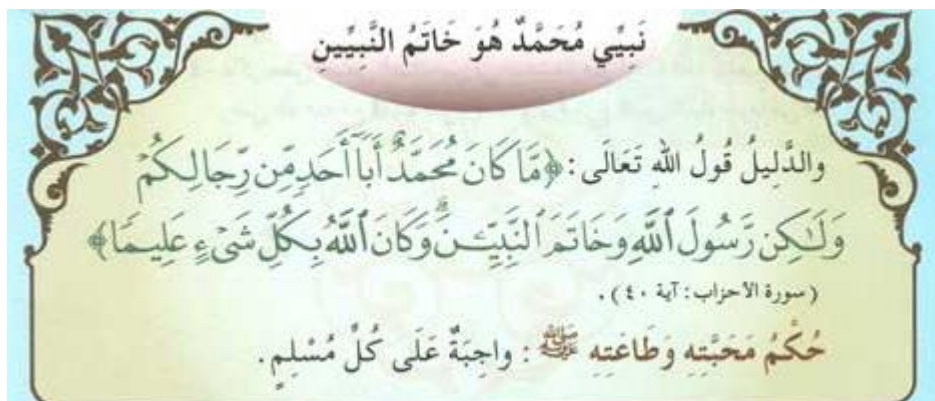 نَبِيِّي مُحَمَّدٌ هُوَ خَاتَمُ النَّبِيِّينِ
والدَّلِيلُ قُولُ اللهِ تَعَالَى: ﴿مَّا كَانَ مُحَمَّدٌ أَبَآ أَحَدٍ مِّن رِّجَالِكُمْ
وَلَٰكِن رَّسُولَ ٱللَّهِ وَخَاتَمَ ٱلنَّبِيِّـۧنَۗ وَكَانَ ٱللَّهُ بِكُلِّ شَىْءٍ عَلِيمًا﴾
(سورة الأحزاب: آية ٤٠).
حُكْمُ مَحَبَّتِهِ وَطَاعَتِهِ ﷺ: واجِبَةٌ عَلَى كُلِّ مُسْلِمٍ.